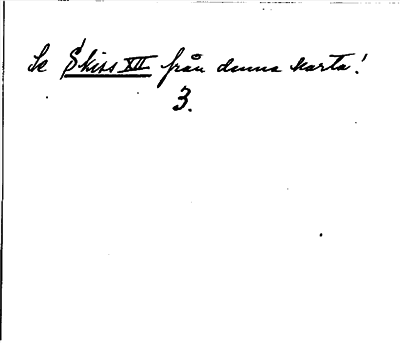 Se Skiss XII från denna karta!
3.